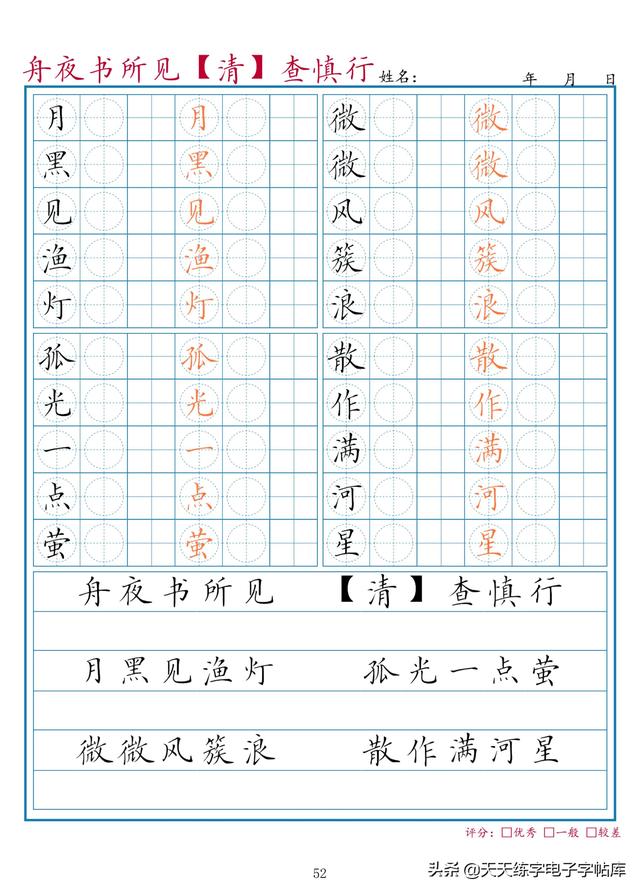 舟夜书所见【清】查慎行 姓名： 年 月 日
月 月 微 微
黑 黑 微 微
见 见 风 风
渔 渔 簇 簇
灯 灯 浪 浪
孤 孤 散 散
光 光 作 作
一 一 满 满
点 点 河 河
萤 萤 星 星
舟夜书所见 【清】查慎行
月黑见渔灯 孤光一点萤
微微风簇浪 散作满河星
评分：□优秀 □一般 □较差
52
头条 @天天练字电子字帖库